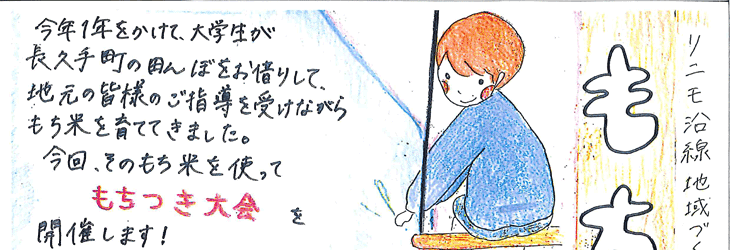 今年1年をかけて、大学生が
長久手町の田んぼをお借りして、
地元の皆様のご指導を受けながら
もち米を育ててきました。
今回、そのもち米を使って
もちつき大会 を
開催します！
リニモ沿線地域づく
もち